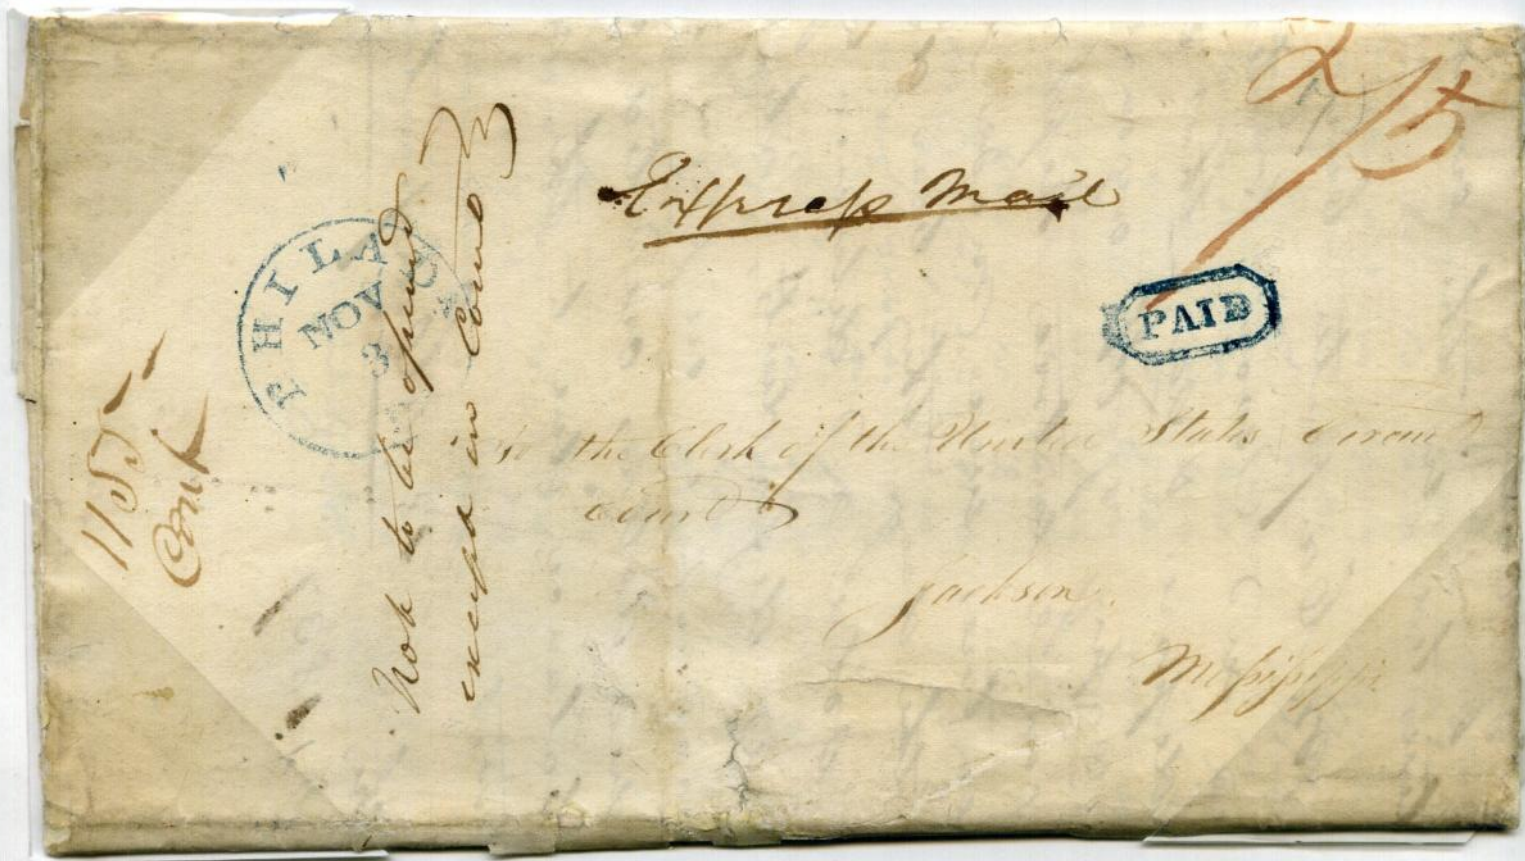 2/5
Express Mail
PAID
PHILA
NOV
3
Not to be opened
except in Court
To the Clerk of the United States Circuit
Court
Jackson
Mississippi
1155